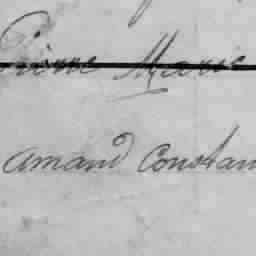 Pierre Marie
Amand Constan